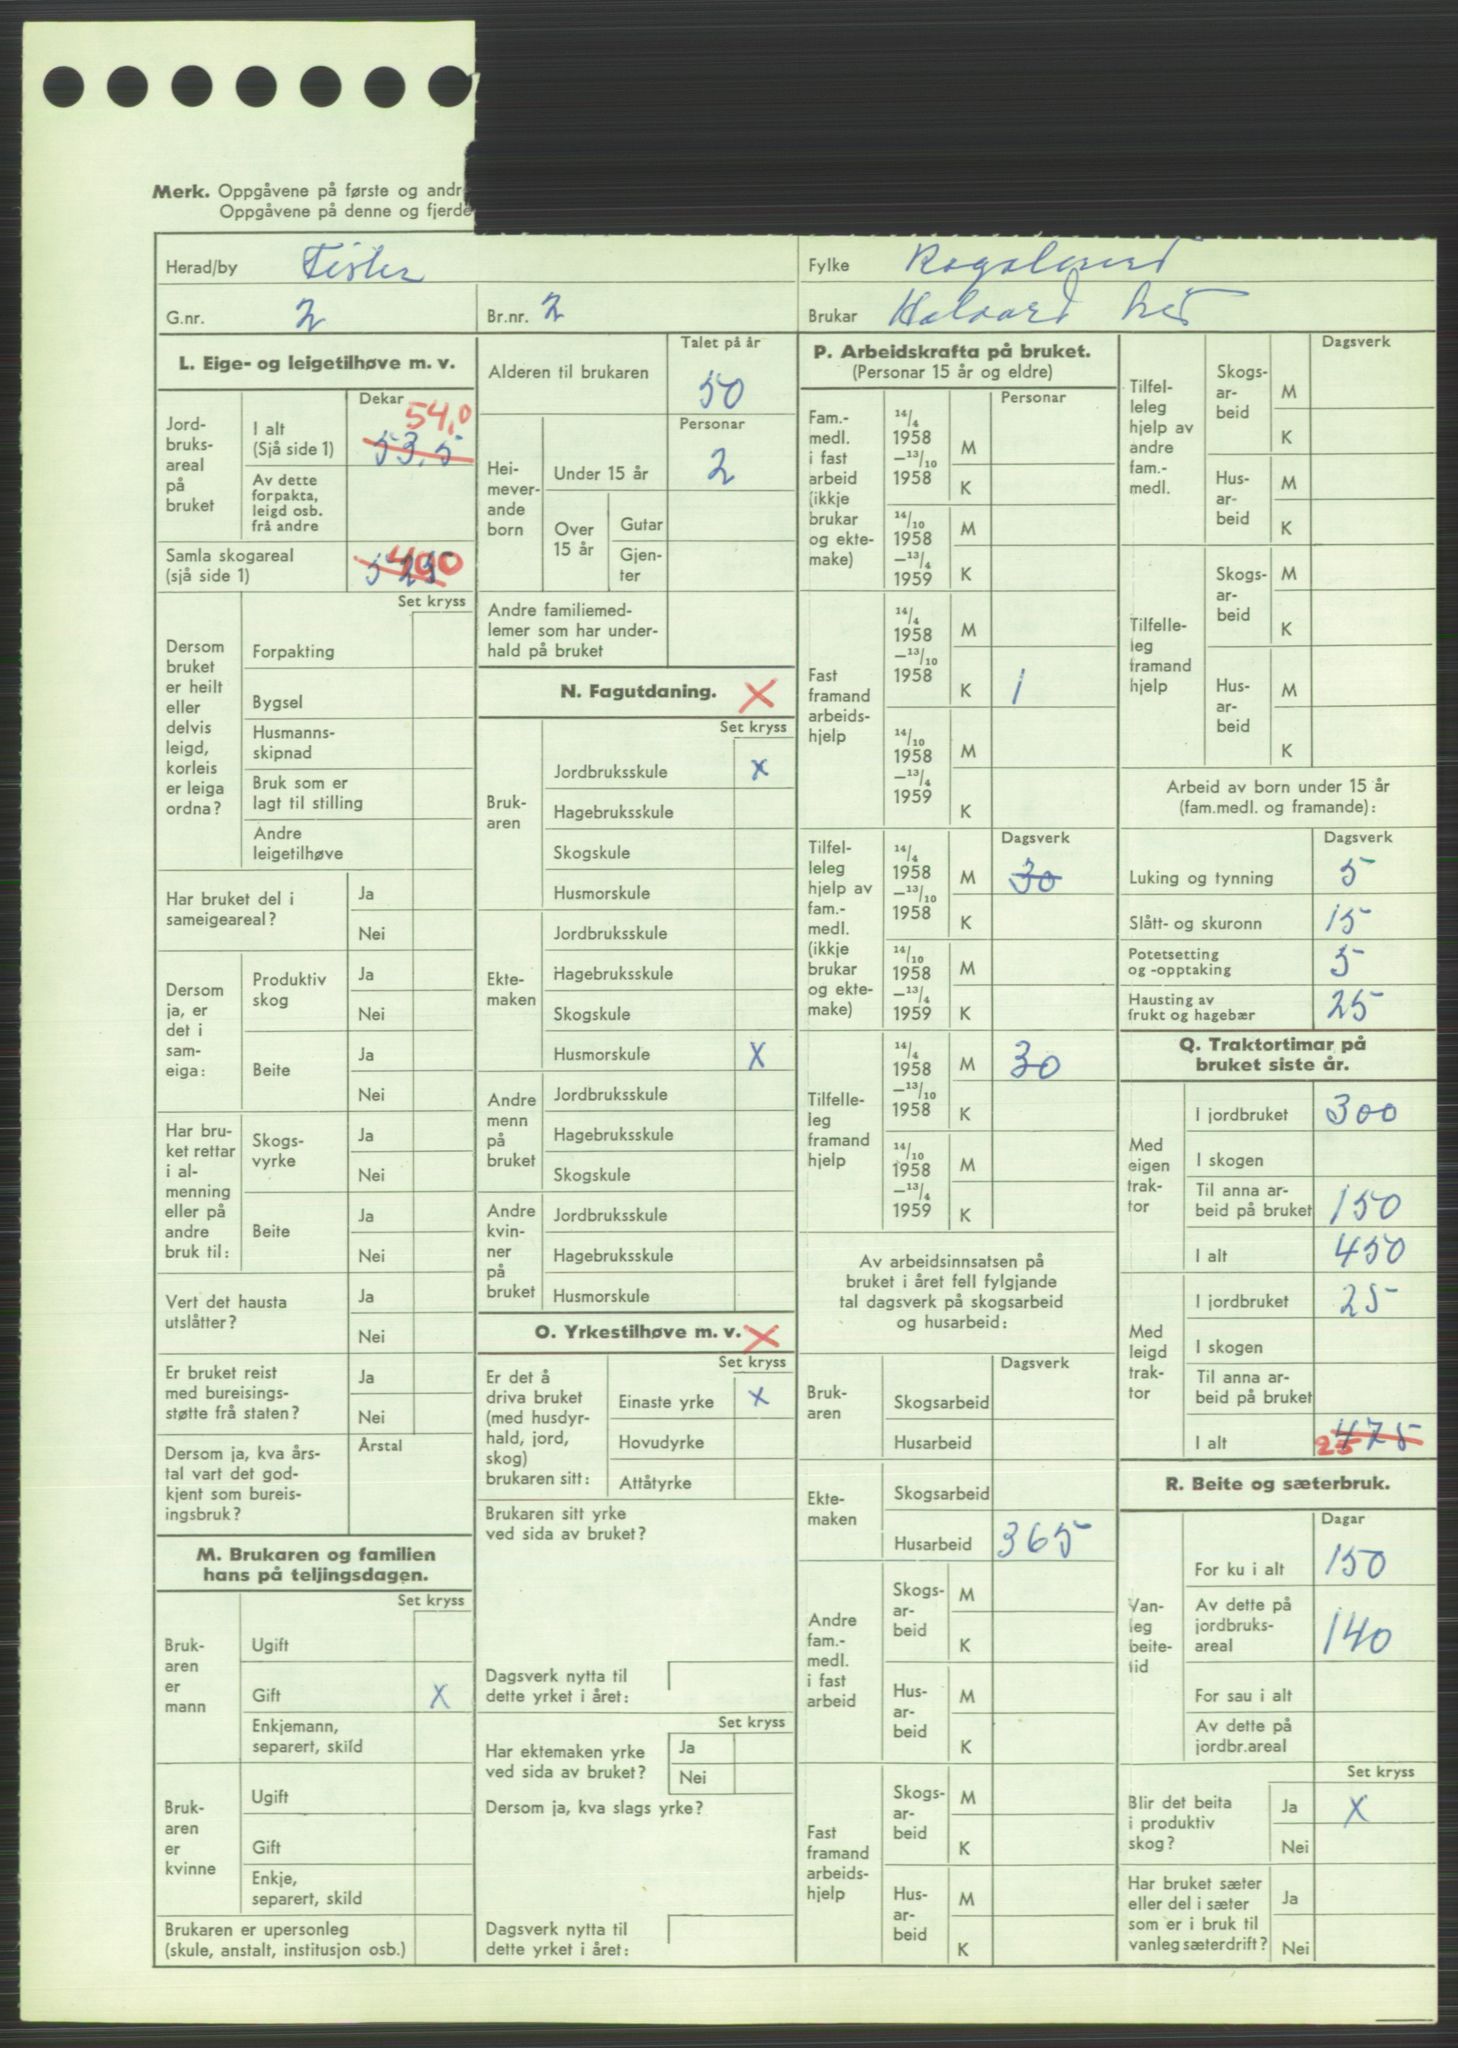 Merk. Oppgåvene på første og andr
Oppgåvene på denne og fjerde
Herad/by Fister
Fylke Rogaland
G.nr. 2
Br.nr. 2
Brukar Halvard
L. Eige- og leigetilhøve m. v.
Dekar
Jord-
bruks-
areal
på
bruket
I alt
(Sjå side 1)
54,0
53,5
Av dette
forpakta,
leigd osb.
frå andre
Samla skogareal
(sjå side 1)
400
525
Set kryss
Dersom
bruket
er heilt
eller
delvis
leigd,
korleis
er leiga
ordna?
Forpakting
Bygsel
Husmanns-
skipnad
Bruk som er
lagt til stilling
Andre
leigetilhøve
Har bruket del i
sameigeareal?
Ja
Nei
Dersom
ja, er
det i
sam-
eiga:
Produktiv
skog
Ja
Nei
Beite
Ja
Nei
Har bru-
ket rettar
i al-
menning
eller på
andre
bruk til:
Skogs-
vyrke
Ja
Nei
Beite
Ja
Nei
Vert det hausta
utslåtter?
Ja
Nei
Er bruket reist
med bureisings-
støtte frå staten?
Ja
Nei
Dersom ja, kva års-
tal vart det god-
kjent som bureis-
ingsbruk?
Årstal
M. Brukaren og familien
hans på teljingsdagen.
Set kryss
Bruk-
aren
er
mann
Ugift
Gift X
Enkjemann,
separert, skild
Bruk-
aren
er
kvinne
Ugift
Gift
Enkje,
separert, skild
Brukaren er upersonleg
(skule, anstalt, institusjon osb.)
Talet på år
Alderen til brukaren 50
Personar
Hei-
mever-
ande
born
Under 15 år 2
Over
15 år
Gutar
Gjen-
ter
Andre familiemed-
lemer som har under-
hald på bruket
N. Fagutdaning. X
Set kryss
Bruk-
aren
Jordbruksskule X
Hagebruksskule
Skogskule
Husmorskule
Ekte-
maken
Jordbruksskule
Hagebruksskule
Skogskule
Husmorskule X
Andre
menn
på
bruket
Jordbruksskule
Hagebruksskule
Skogskule
Andre
kvin-
ner
på
bruket
Jordbruksskule
Hagebruksskule
Husmorskule
O. Yrkestilhøve m. v. X
Set kryss
Er det å
driva bruket
(med husdyr-
hald, jord,
skog)
brukaren sitt:
Einaste yrke X
Hovudyrke
Attåtyrke
Brukaren sitt yrke
ved sida av bruket?
Dagsverk nytta til
dette yrket i året:
Set kryss
Har ektemaken yrke
ved sida av bruket?
Ja
Nei
Dersom ja, kva slags yrke?
Dagsverk nytta til
dette yrket i året:
P. Arbeidskrafta på bruket.
(Personar 15 år og eldre)
Personar
Fam.-
medl.
i fast
arbeid
(ikkje
brukar
og ekte-
make)
14/4
1958
—13/10
1958
M
K
14/10
1958
—13/4
1959
M
K
Fast
framand
arbeids-
hjelp
14/4
1958
—13/10
1958
M
K 1
14/10
1958
—13/4
1959
M
K
Dagsverk
Tilfel-
leleg
hjelp av
fam.-
medl.
(ikkje
brukar
og ekte-
make)
14/4
1958
—13/10
1958
M 30
K
14/10
1958
—13/4
1959
M
K
Tilfelle-
leg
framand
hjelp
14/4
1958
—13/10
1958
M 30
K
14/10
1958
—13/4
1959
M
K
Av arbeidsinnsatsen på
bruket i året fell fylgjande
tal dagsverk på skogsarbeid
og husarbeid:
Dagsverk
Bruk-
aren
Skogsarbeid
Husarbeid
Ekte-
maken
Skogsarbeid
Husarbeid 365
Andre
fam.-
medl.
i fast
arbeid
Skogs-
ar-
beid
M
K
Hus-
ar-
beid
M
K
Fast
framand
arbeids-
hjelp
Skogs-
ar-
beid
M
K
Hus-
ar-
beid
M
K
Dagsverk
Tilfel-
leleg
hjelp av
andre
fam.-
medl.
Skogs-
ar-
beid
M
K
Hus-
ar-
beid
M
K
Tilfelle-
leg
framand
hjelp
Skogs-
ar-
beid
M
K
Hus-
ar-
beid
M
K
Arbeid av born under 15 år
(fam.medl. og framande):
Dagsverk
Luking og tynning 5
Slått- og skuronn 15
Potetsetting
og -opptaking 5
Hausting av
frukt og hagebær 25
Q. Traktortimar på
bruket siste år.
Med
eigen
trak-
tor
I jordbruket 300
I skogen
Til anna ar-
beid på bruket 150
I alt 450
Med
leigd
trak-
tor
I jordbruket 25
I skogen
Til anna ar-
beid på bruket
I alt 25 475
R. Beite og sæterbruk.
Dagar
Van-
leg
beite-
tid
For ku i alt 150
Av dette på
jordbruks-
areal 140
For sau i alt
Av dette på
jordbr.areal
Set kryss
Blir det beita
i produktiv
skog?
Ja X
Nei
Har bruket sæter
eller del i sæter
som er i bruk til
vanleg sæterdrift?
Ja
Nei